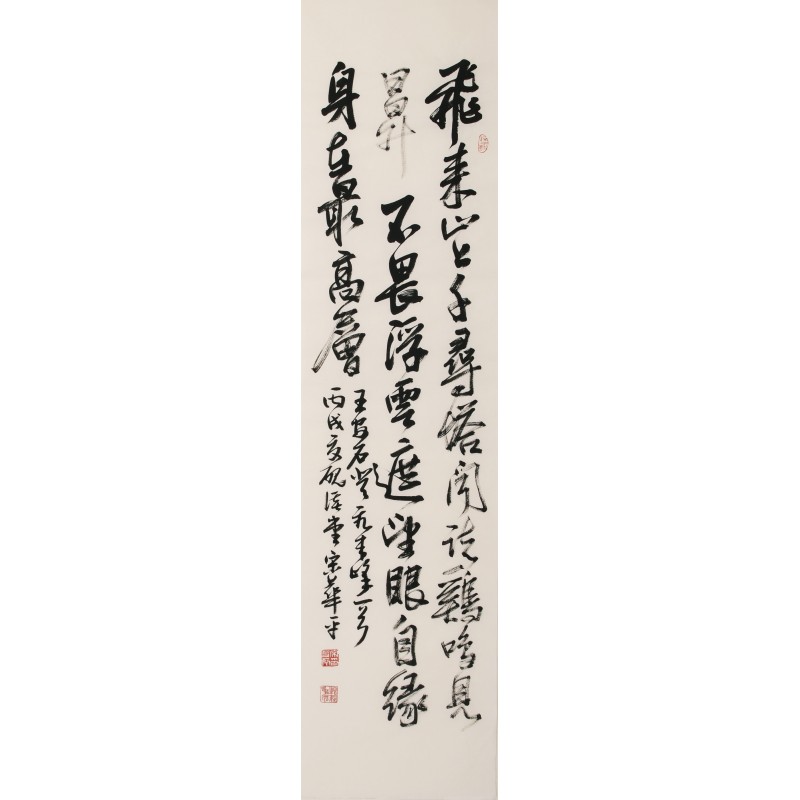 飛来山上千尋塔聞説鷄鳴見
日昇不畏浮雲遮望眼自緣
身在最高層
王安石登飛来峰一首
丙戌夏硯堂